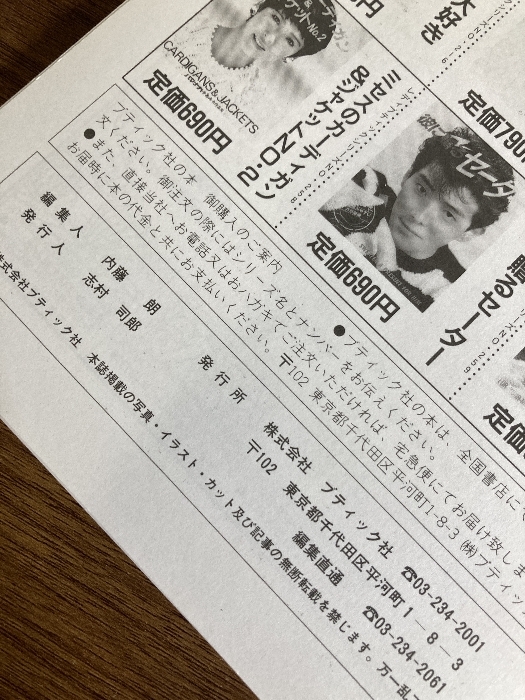 定価690円
CARDIGANS & JACKETS
ミセスのカーディガン
&ジャケットNO.2
定価690円
贈るセーター
定価790
大好き
ブティック社の本 御購入のご案内
●ブティック社の本は、全国書店にて
文ください。御注文の際にはシリーズ名とナンバーをお伝えください。
●また、直接当社へお電話又はおハガキでご注文いただければ、宅急便にてお届け致しま
お届時に本の代金と共にお支払いください。〒102 東京都千代田区平河町1-8-3 ㈱ブティッ
編集人 内藤 朗
発行人 志村 司郎
発行所 株式会社 ブティック社 ☎03-234-2001
〒102 東京都千代田区平河町1-8-3
編集直通 ☎03-234-2061
株式会社ブティック社 本誌掲載の写真・イラスト・カット及び記事の無断転載を禁じます。万一乱